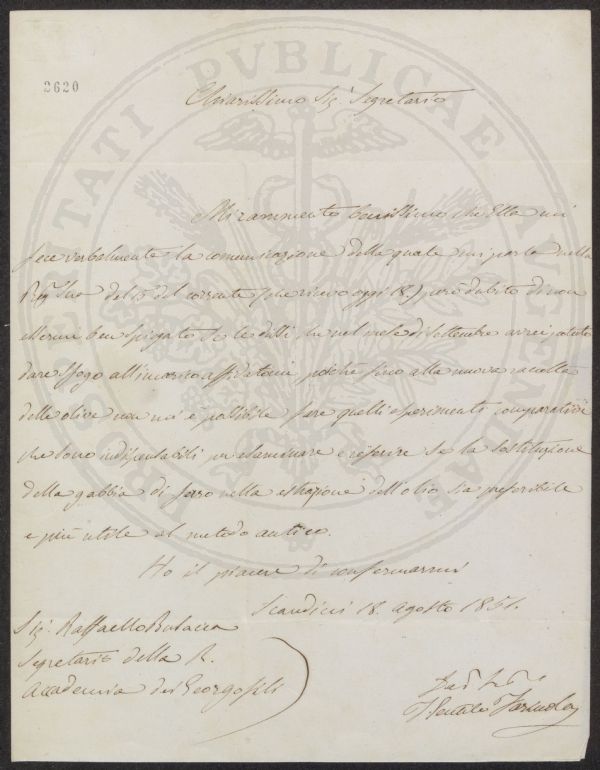 2620
Chiarissimo Sig.r Segretario
Mi rammento benissimo che Ella mi
fece verbalmente la comunicazione della quale mi parla nella
del 15 del corrente (che ricevo oggi 18,) però dubito di non
essermi ben spigato se le dissi, che nel mese di Settembre avrei potuto
dare sfogo all'incarico affidatomi poichè fino alla nuova raccolta
delle olive non m'è possibile fare quelli esperimenti comparativi
che sono indispensabili per esaminare e riferire se la sostituzione
della gabbia di ferro nella estrazione dell'olio sia preferibile
e più utile al metodo antico.
Ho il piacere di confermarmi
Scandicci 18. agosto 1851.
Sig.r Raffaello Busacca
Segretario della R.
Accademia dei Georgofili
PROSPERITATI PUBLICAE AUGENDAE